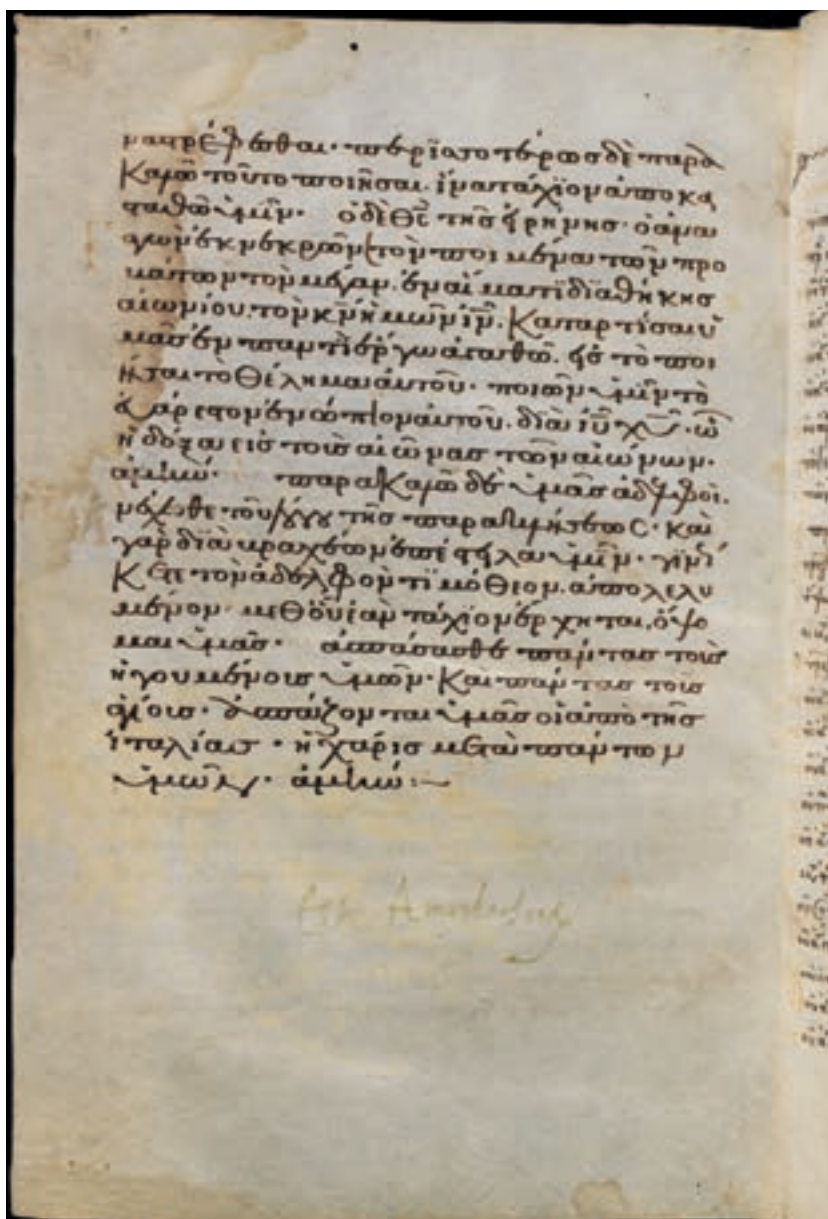 ναστρέφεσθαι· περϊσσοτέρως δὲ παρα
καλῶ τοῦτο ποιῆσαι. ἵνα τάχϊον ἀποκα
ταθῶ ὑμῖν· ὁ δὲ θ̅ς̅ τῆς εἰρήνης· ὁ ἀνα
γὼν ἐκ νεκρῶν τὸν ποιμένα τῶν προ
βάτων τὸν μέγαν. ἐν αἵματι δϊαθήκης
αἰωνίου. τὸν κ̅ν̅ ἡμῶν ι̅ν̅. καταρτίσαι ὑ
μᾶς ἐν παντὶ ἔργω ἀγαθῶ. εἰς τὸ ποι
ῆσαι τὸ θέλημα αὐτοῦ· ποιῶν ὑμῖν τὸ
εὐάρεστον ἐνώπϊον αὐτοῦ. δϊὰ ι̅υ̅ χ̅υ̅· ὧ
ἡ δόξα εἰς τοὺς αἰῶνας τῶν αἰώνων.
ἀμήν· παρακαλῶ δὲ ὑμᾶς ἀδελφοὶ.
ἀνέχεσθε τοῦ λόγου τῆς παρακλήσεως· καὶ
γὰρ δϊὰ βραχέων ἐπέστειλα ὑμῖν· γϊνώ
σκετε τὸν ἀδελφὸν τϊμόθεον. ἀπολελυ
μένον· μεθ οὗ ἐὰν τάχϊον ἔρχηται, ὄψο
μαι ὑμᾶς· ἀσπάσασθε πάντας τοὺς
ἡγουμένους ὑμῶν· καὶ πάντας τοὺς
ἁγίους· ἀσπάζονται ὑμᾶς οἱ ἀπὸ τῆς
ἰταλίας· ἡ χάρις μετὰ πάντων
ὑμῶν· ἀμήν:~